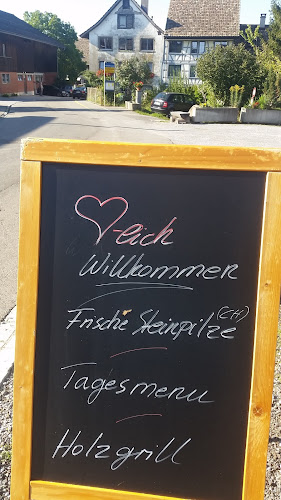 ♡-lich
Willkommen
Frische Steinpilze (CH)
Tagesmenu
Holzgrill